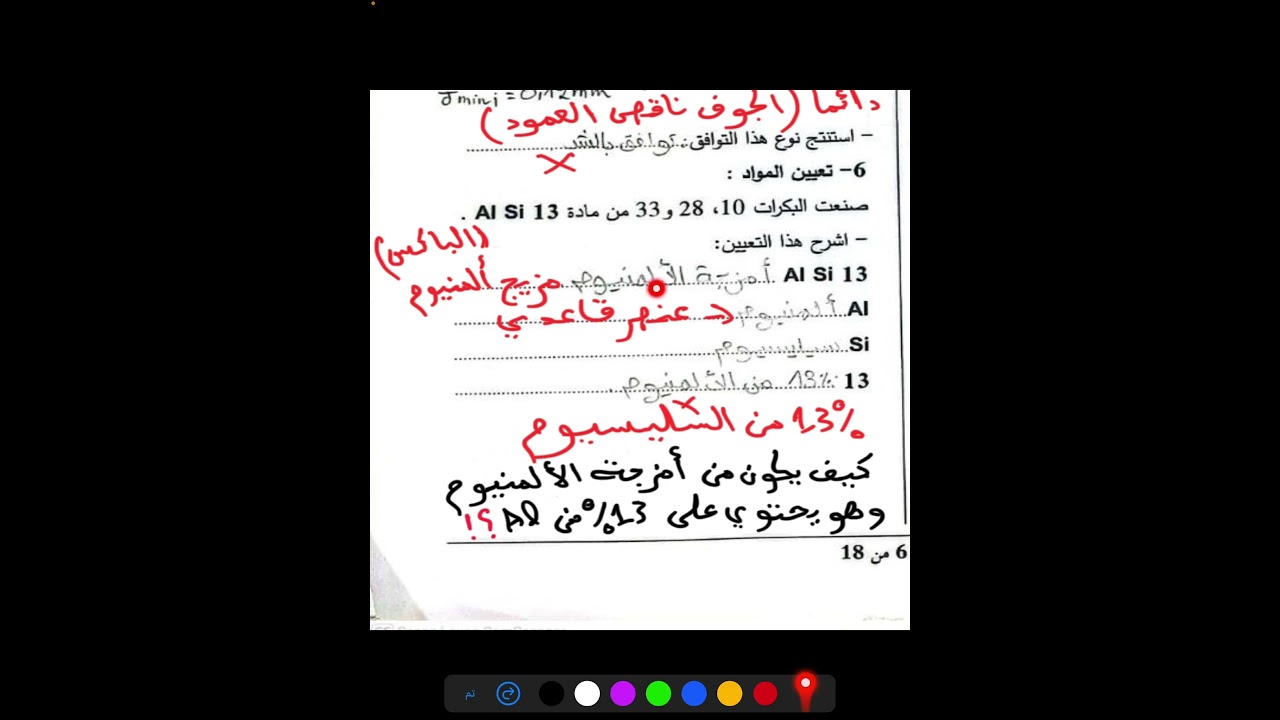 Jmini = 0,12mm
دائما (الجوف ناقص العمود)
– استنتج نوع هذا التوافق: توافق بالشد
6– تعيين المواد :
صنعت البكرات 10، 28 و 33 من مادة Al Si 13 .
– اشرح هذا التعيين:
(الباكس)
Al Si 13 أمزجة الألمنيوم مزيج ألمنيوم
Al ألمنيوم → عنصر قاعدي
Si سيليسيوم
13 13% من الألمنيوم
13% من السليسيوم
كيف يكون من أمزجة الألمنيوم
وهو يحتوي على 13% من Al ؟!
6 من 18
تم